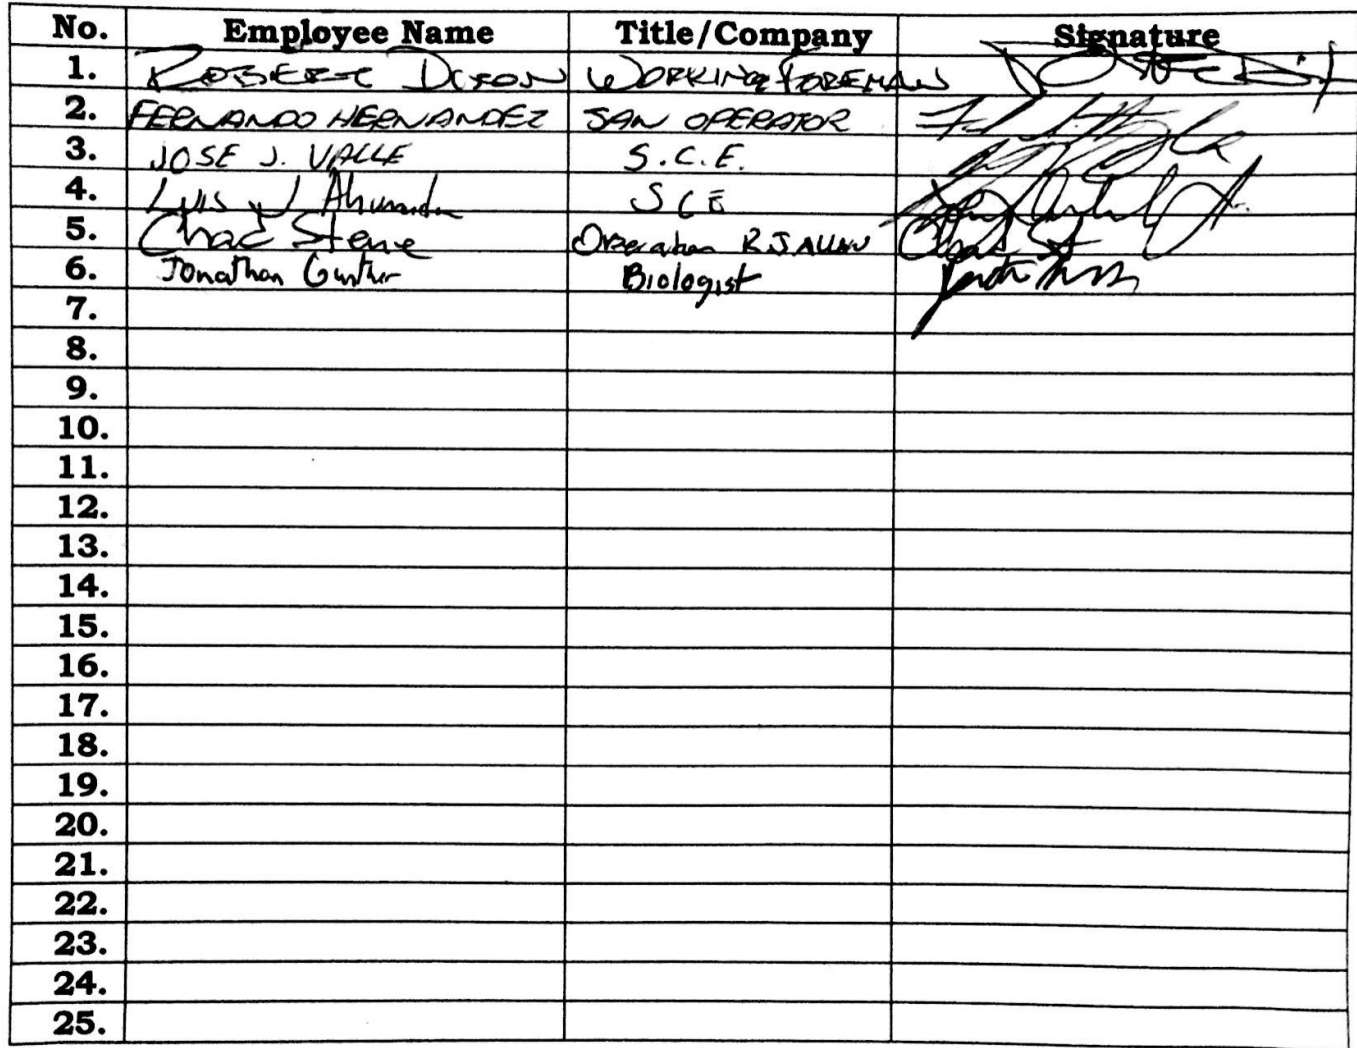 No. Employee Name Title/Company Signature
1. ROBERT DIXON WORKING FOREMAN
2. FERNANDO HERNANDEZ SAN OPERATOR
3. JOSE J. VALLE S.C.E.
4. Luis J Ahumada SCE
5. Chad R.J ALLEN
6. Jonathan Gunther Biologist
7.
8.
9.
10.
11.
12.
13.
14.
15.
16.
17.
18.
19.
20.
21.
22.
23.
24.
25.